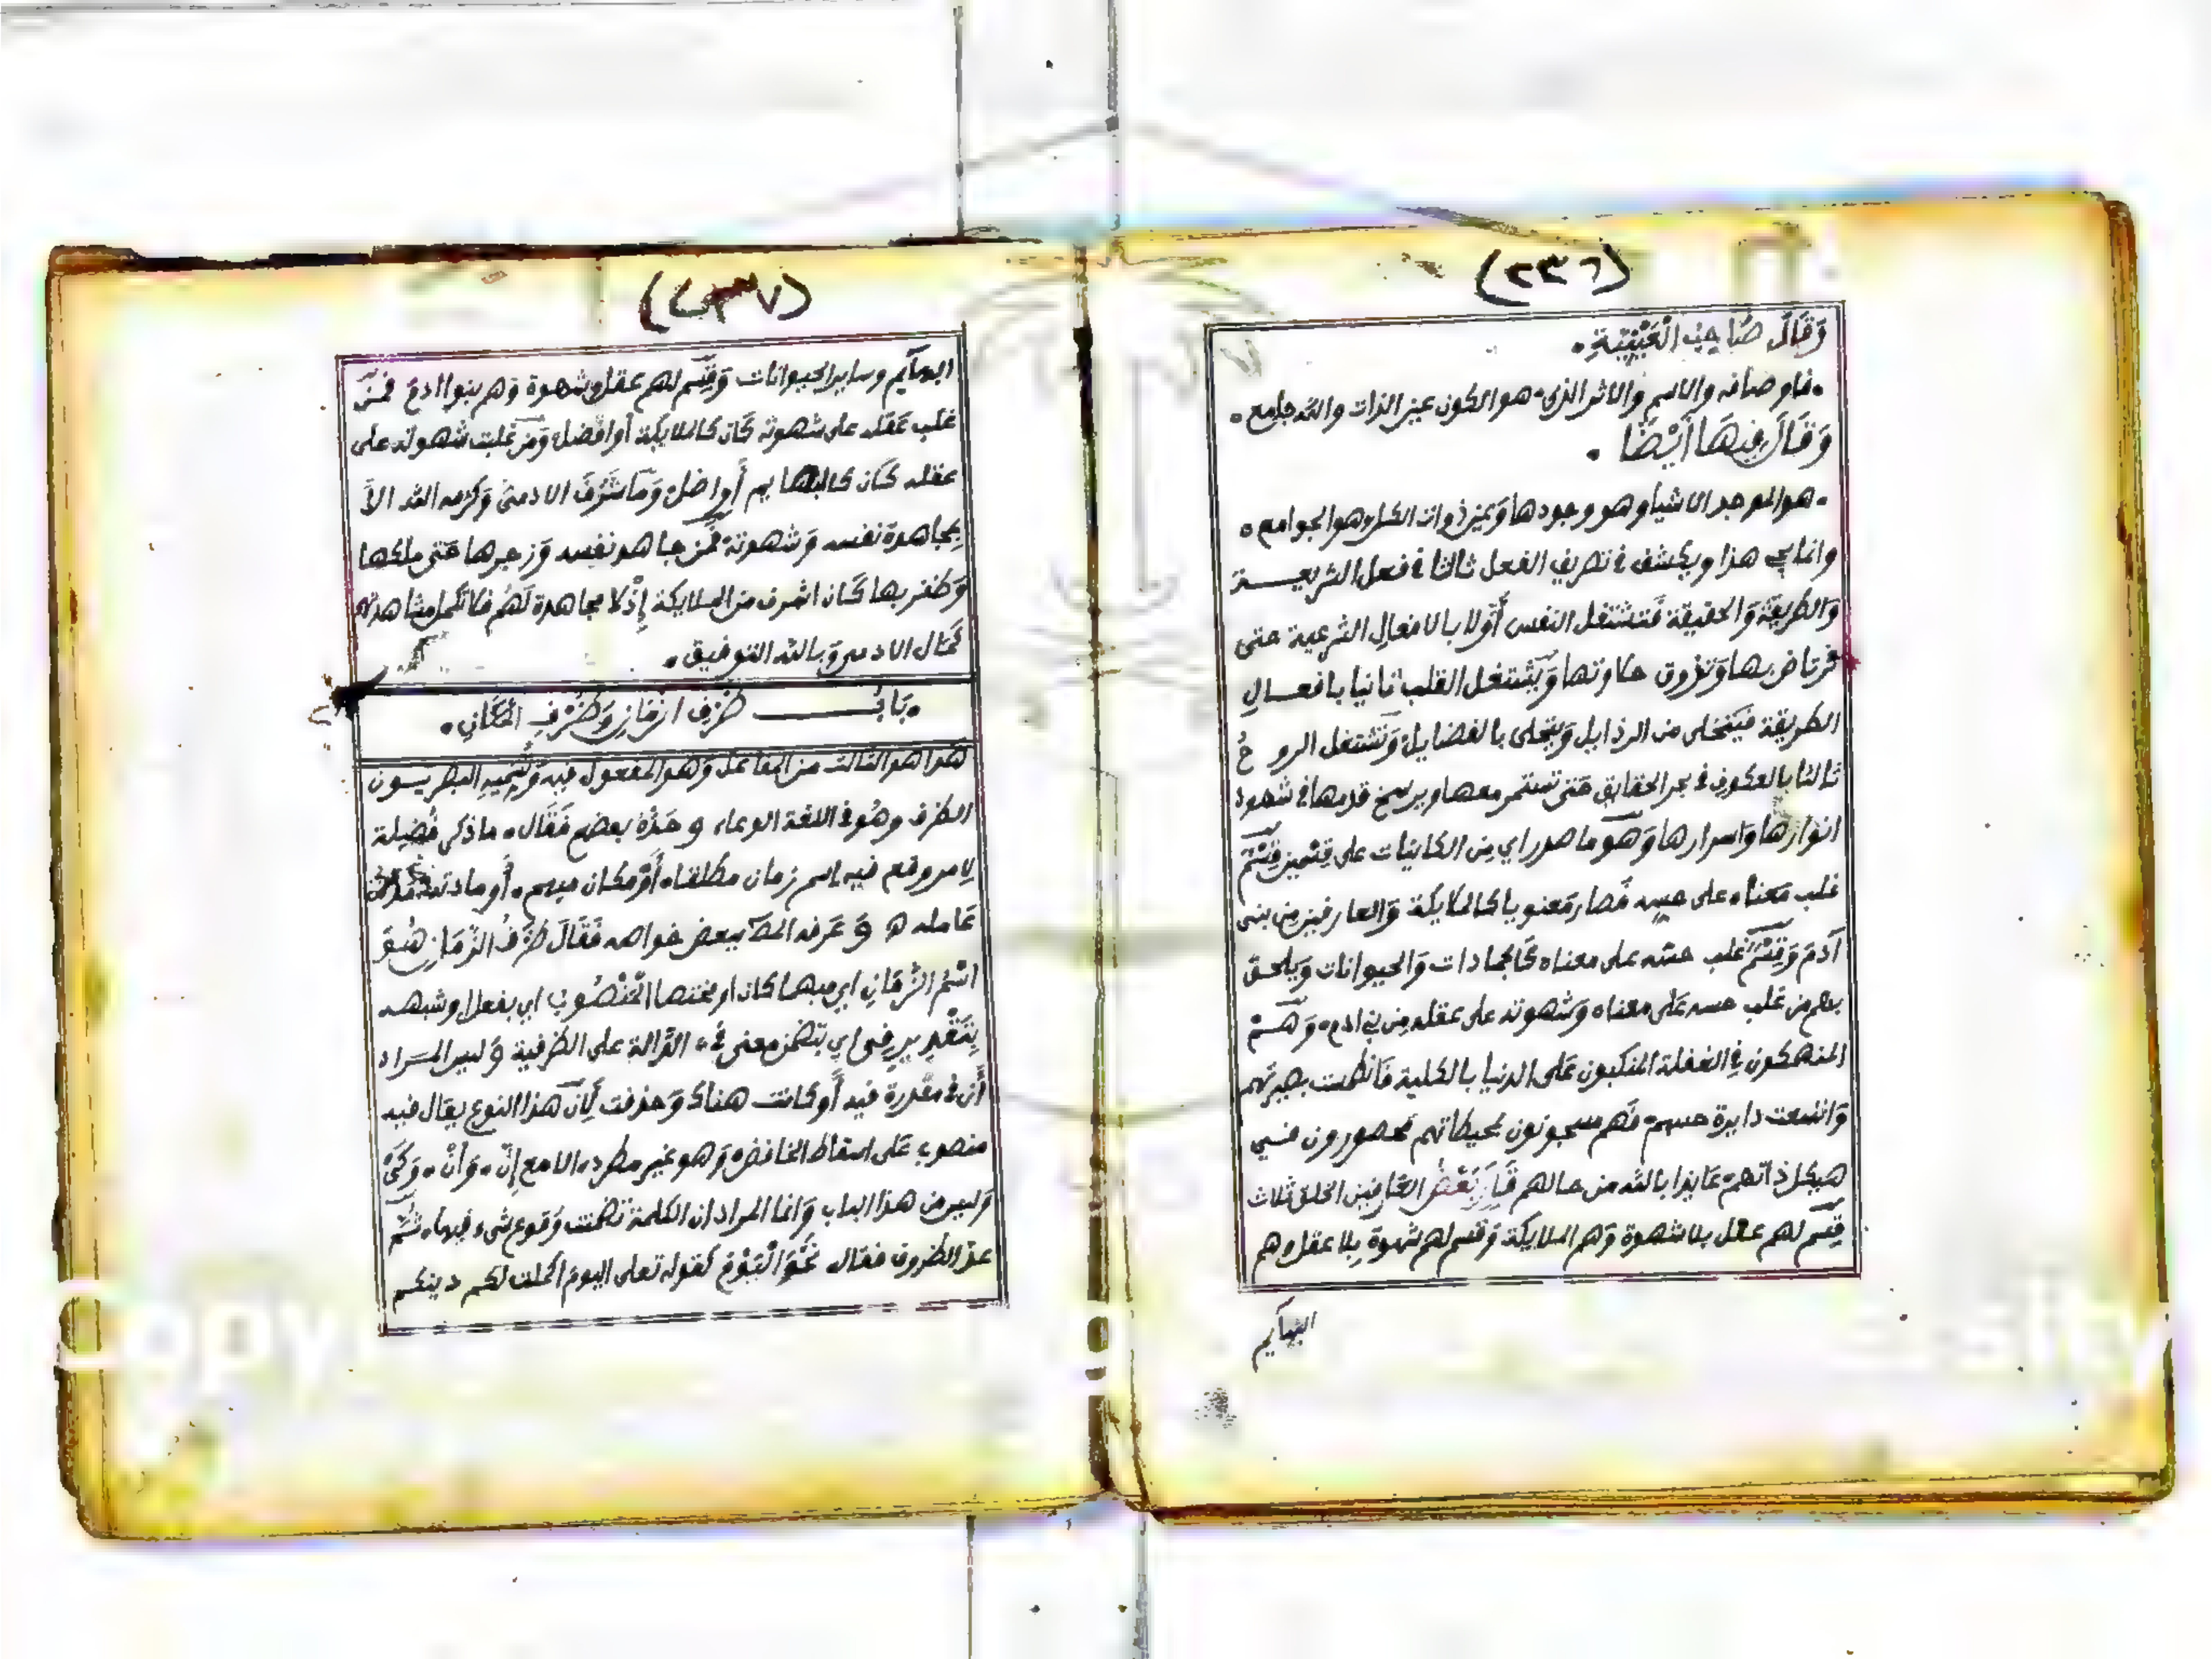 (٢٣٦)
وَقَالَ صَاحِبُ الْعَيْنِيَّةِ ۰
۰ فاوصافه والاسم والاثر الذي ۰ هو الكون عين الذات والله جامع ۰
وَقَالَ فِيهَا أَيْضًا ۰
۰ هو الموجد الاشيا وهو وجودها وَعين ذوات الكل وهو الجوامع ۰
وانما يجي هذا ويكشف في تصريف الفعل ثالثا في فعل الشريعــة
وَالطريقة وَالحقيقة فتشتغل النفس أولا بالافعال الشرعية حتى
ترتاض بها وَتذوق حلاوتها وَيشتغل القلب ثانيا بافعــال
الطريقة فيتخلى من الرذايل وَيتحلى بالفضايل وَتشتغل الروحُ
ثالثا بالعكوف في بحر الحقايق حتى تستمر معها ويرسخ قدمها في شهود
انوارها وَاسرارها وَهو ما صدر اي من الكاينات على قسمين قِسْمٌ
غلب معناه على حسه فصار معنويا كالملايكة وَالعارفين من بنى
آدم وَقِسْمٌ غلب حسه على معناه كالجمادات وَالحيوانات وَيلحق
بهم من غلب حسه على معناه وَشهوته على عقله من بني ادم ۰ وَهــمْ
المنهمكون في الغفلة المنكبون على الدنيا بالكلية فانطمست بصيرتهم
وَاتسعت دايرة حسهم فهم مسجونون بمحيطاتهم محصورون فـي
هيكل ذاتهم ۰ عايذا بالله من حالهم قَالَ بَعْضُ العَارفين الخلق ثلاث
قِسم لهم عقل بلا شهوة وَهم الملايكة وَقسم لهم شهوة بلا عقل وهم
البهآيم
(٢٣٧)
البهآيم وساير الحيوانات وَقِسم لهم عقل وشهوة وَهم بنوا ادم فمن
غلب عَقله على شهوته كَان كالملايكة أو افضل وَمن غلبت شهوته على
عقله كَان كالبهايم أو اضل وَمَا شَرُفَ الادمىُ وَكرمه الله الاَّ
بِمجاهدة نفسه وَشهوته فمن جاهد نفسه وَزجرها حتى ملكها
وَظفر بها كَان اشرف من الملايكة إِذْ لا مجاهدة لَهُم فلا تكمل مشاهدتهم
كَمال الادمى وَبالله التوفيق ۰
۰ بَابُــــ ظَرْفِ الزَّمَانِ وَظَرْفِ الْمَكَانِ ۰
هَذا هو الثالث من المفاعيل وَهو المفعول فيه وَيُسَمِّيهِ البصريــون
الظرف وهُو في اللغة الوعاء وحَدَّهُ بعضهم فَقَال ۰ ما ذكر فضيلة
لِامر وقع فيه اسم زمان مطلقا ۰ أَوْ مكان مبهم ۰ أو مادته مادة
عَامله ه وَعَرفه المصَ ببعض خواصه فَقَالَ ظَرْفُ الزَّمَانِ هُـوَ
اسْمُ الزَّمَانِ اي مبهما كان او مختصا الْمَنْصُوبُ اي بفعل او شبهه
بِتَقْدِيرِ فِى اي بتضمن معنى في ۰ الدَّالة على الظرفية وَليس المـراد
أن في مقدرة فيه أو كانت هناك وَحذفت لِأن هذا النوع يقال فيه
منصوب عَلى اسقاط الخافض وَهو غير مطرد ۰ الا مع إنّ ۰ وَأَنْ ۰ وَكَىْ
وَليس من هذا الباب وَانما المراد ان الكلمة تضمنت وَقوع شيء فيها ۰ ثُـمَّ
عدّ الظروف فقال نَحْوَ الْيَوْمَ كقوله تعلى اليوم اكملت لكم دينكم